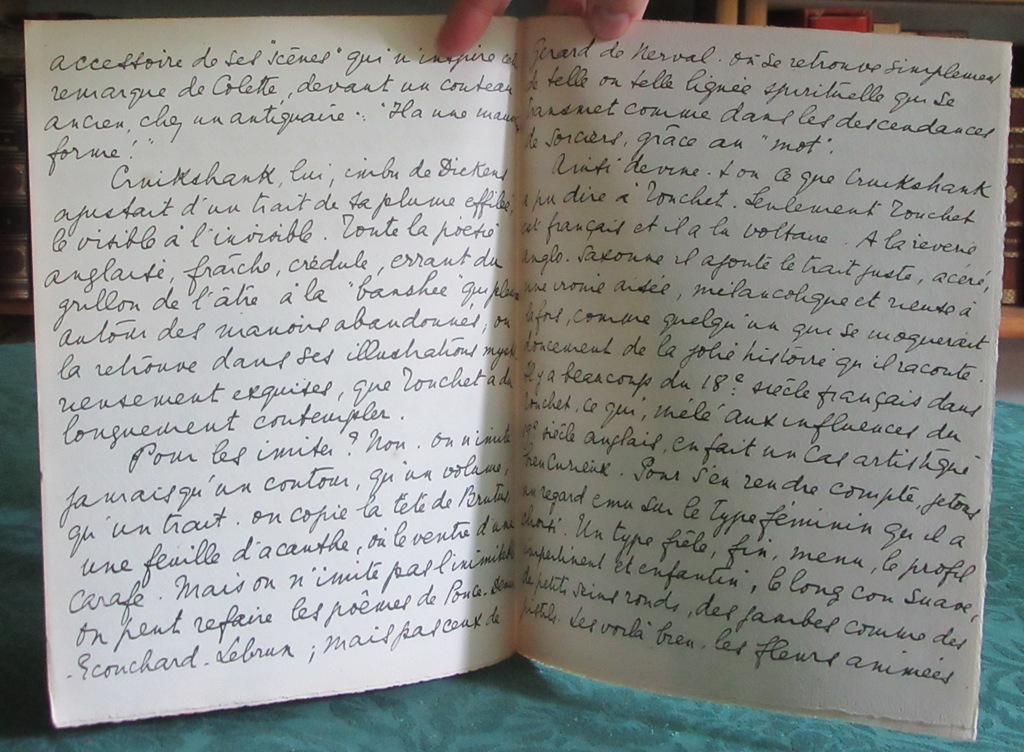 accessoire de ses "scènes" qui n'inspire
remarque de Colette, devant un couteau
ancien, chez un antiquaire : "Il a une
forme !"
Cruikshank, lui, imbu de Dickens
ajustait d'un trait de sa plume effilée,
le visible à l'invisible. Toute la poésie
anglaise, fraîche, crédule, errant du
grillon de l'âtre à la "banshee" qui
autour des manoirs abandonnés, on
la retrouve dans ses illustrations
rieusement exquises, que Touchet a dû
longuement contempler.
Pour les imiter ? Non. On n'imite
jamais qu'un contour, qu'un volume,
qu'un trait. On copie la tête de Brutus
une feuille d'acanthe, ou le ventre d'une
carafe. Mais on n'imite pas l'inimitable
On peut refaire les poèmes de Ponce-Denis
-Ecouchard-Lebrun ; mais pas ceux de
Gérard de Nerval. Où se retrouve simplement
de telle ou telle lignée spirituelle qui se
transmet comme dans les descendances
de sorciers, grâce au "mot".
Ainsi devine-t-on ce que Cruikshank
a pu dire à Touchet. Seulement Touchet
est français et il a lu Voltaire. A la rêverie
anglo-saxonne il ajoute le trait juste, acéré,
une ironie aisée, mélancolique et rieuse à
la fois, comme quelqu'un qui se moquerait
doucement de la jolie histoire qu'il raconte.
Il y a beaucoup du 18e siècle français dans
Touchet, ce qui, mêlé aux influences du
siècle anglais, en fait un cas artistique
bien curieux. Pour s'en rendre compte, jetons
un regard ému sur le type féminin qu'il a
choisi. Un type frêle, fin, menu, le profil
impertinent et enfantin, le long cou suave,
de petits seins ronds, des jambes comme des
pistils. Les voilà bien, les fleurs animées